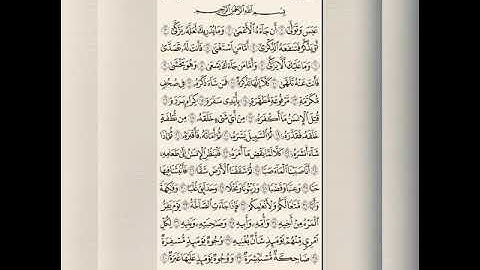 بِسْمِ ٱللَّهِ ٱلرَّحْمَٰنِ ٱلرَّحِيمِ
عَبَسَ وَتَوَلَّىٰٓ ١ أَن جَآءَهُ ٱلْأَعْمَىٰ ٢ وَمَا يُدْرِيكَ لَعَلَّهُۥ يَزَّكَّىٰٓ ٣
أَوْ يَذَّكَّرُ فَتَنفَعَهُ ٱلذِّكْرَىٰٓ ٤ أَمَّا مَنِ ٱسْتَغْنَىٰ ٥ فَأَنتَ لَهُۥ تَصَدَّىٰ ٦
وَمَا عَلَيْكَ أَلَّا يَزَّكَّىٰ ٧ وَأَمَّا مَن جَآءَكَ يَسْعَىٰ ٨ وَهُوَ يَخْشَىٰ ٩
فَأَنتَ عَنْهُ تَلَهَّىٰ ١٠ كَلَّآ إِنَّهَا تَذْكِرَةٌ ١١ فَمَن شَآءَ ذَكَرَهُۥ ١٢ فِى صُحُفٍ
مُّكَرَّمَةٍ ١٣ مَّرْفُوعَةٍ مُّطَهَّرَةٍۭ ١٤ بِأَيْدِى سَفَرَةٍ ١٥ كِرَامٍۭ بَرَرَةٍ ١٦
قُتِلَ ٱلْإِنسَٰنُ مَآ أَكْفَرَهُۥ ١٧ مِنْ أَىِّ شَىْءٍ خَلَقَهُۥ ١٨ مِن نُّطْفَةٍ
خَلَقَهُۥ فَقَدَّرَهُۥ ١٩ ثُمَّ ٱلسَّبِيلَ يَسَّرَهُۥ ٢٠ ثُمَّ أَمَاتَهُۥ فَأَقْبَرَهُۥ ٢١ ثُمَّ إِذَا
شَآءَ أَنشَرَهُۥ ٢٢ كَلَّا لَمَّا يَقْضِ مَآ أَمَرَهُۥ ٢٣ فَلْيَنظُرِ ٱلْإِنسَٰنُ إِلَىٰ طَعَامِهِۦٓ ٢٤
أَنَّا صَبَبْنَا ٱلْمَآءَ صَبًّا ٢٥ ثُمَّ شَقَقْنَا ٱلْأَرْضَ شَقًّا ٢٦ فَأَنۢبَتْنَا فِيهَا
حَبًّا ٢٧ وَعِنَبًا وَقَضْبًا ٢٨ وَزَيْتُونًا وَنَخْلًا ٢٩ وَحَدَآئِقَ غُلْبًا ٣٠ وَفَٰكِهَةً
وَأَبًّا ٣١ مَّتَٰعًا لَّكُمْ وَلِأَنْعَٰمِكُمْ ٣٢ فَإِذَا جَآءَتِ ٱلصَّآخَّةُ ٣٣ يَوْمَ يَفِرُّ
ٱلْمَرْءُ مِنْ أَخِيهِ ٣٤ وَأُمِّهِۦ وَأَبِيهِ ٣٥ وَصَٰحِبَتِهِۦ وَبَنِيهِ ٣٦ لِكُلِّ
ٱمْرِئٍ مِّنْهُمْ يَوْمَئِذٍ شَأْنٌ يُغْنِيهِ ٣٧ وُجُوهٌ يَوْمَئِذٍ مُّسْفِرَةٌ ٣٨
ضَاحِكَةٌ مُّسْتَبْشِرَةٌ ٣٩ وَوُجُوهٌ يَوْمَئِذٍ عَلَيْهَا غَبَرَةٌ ٤٠